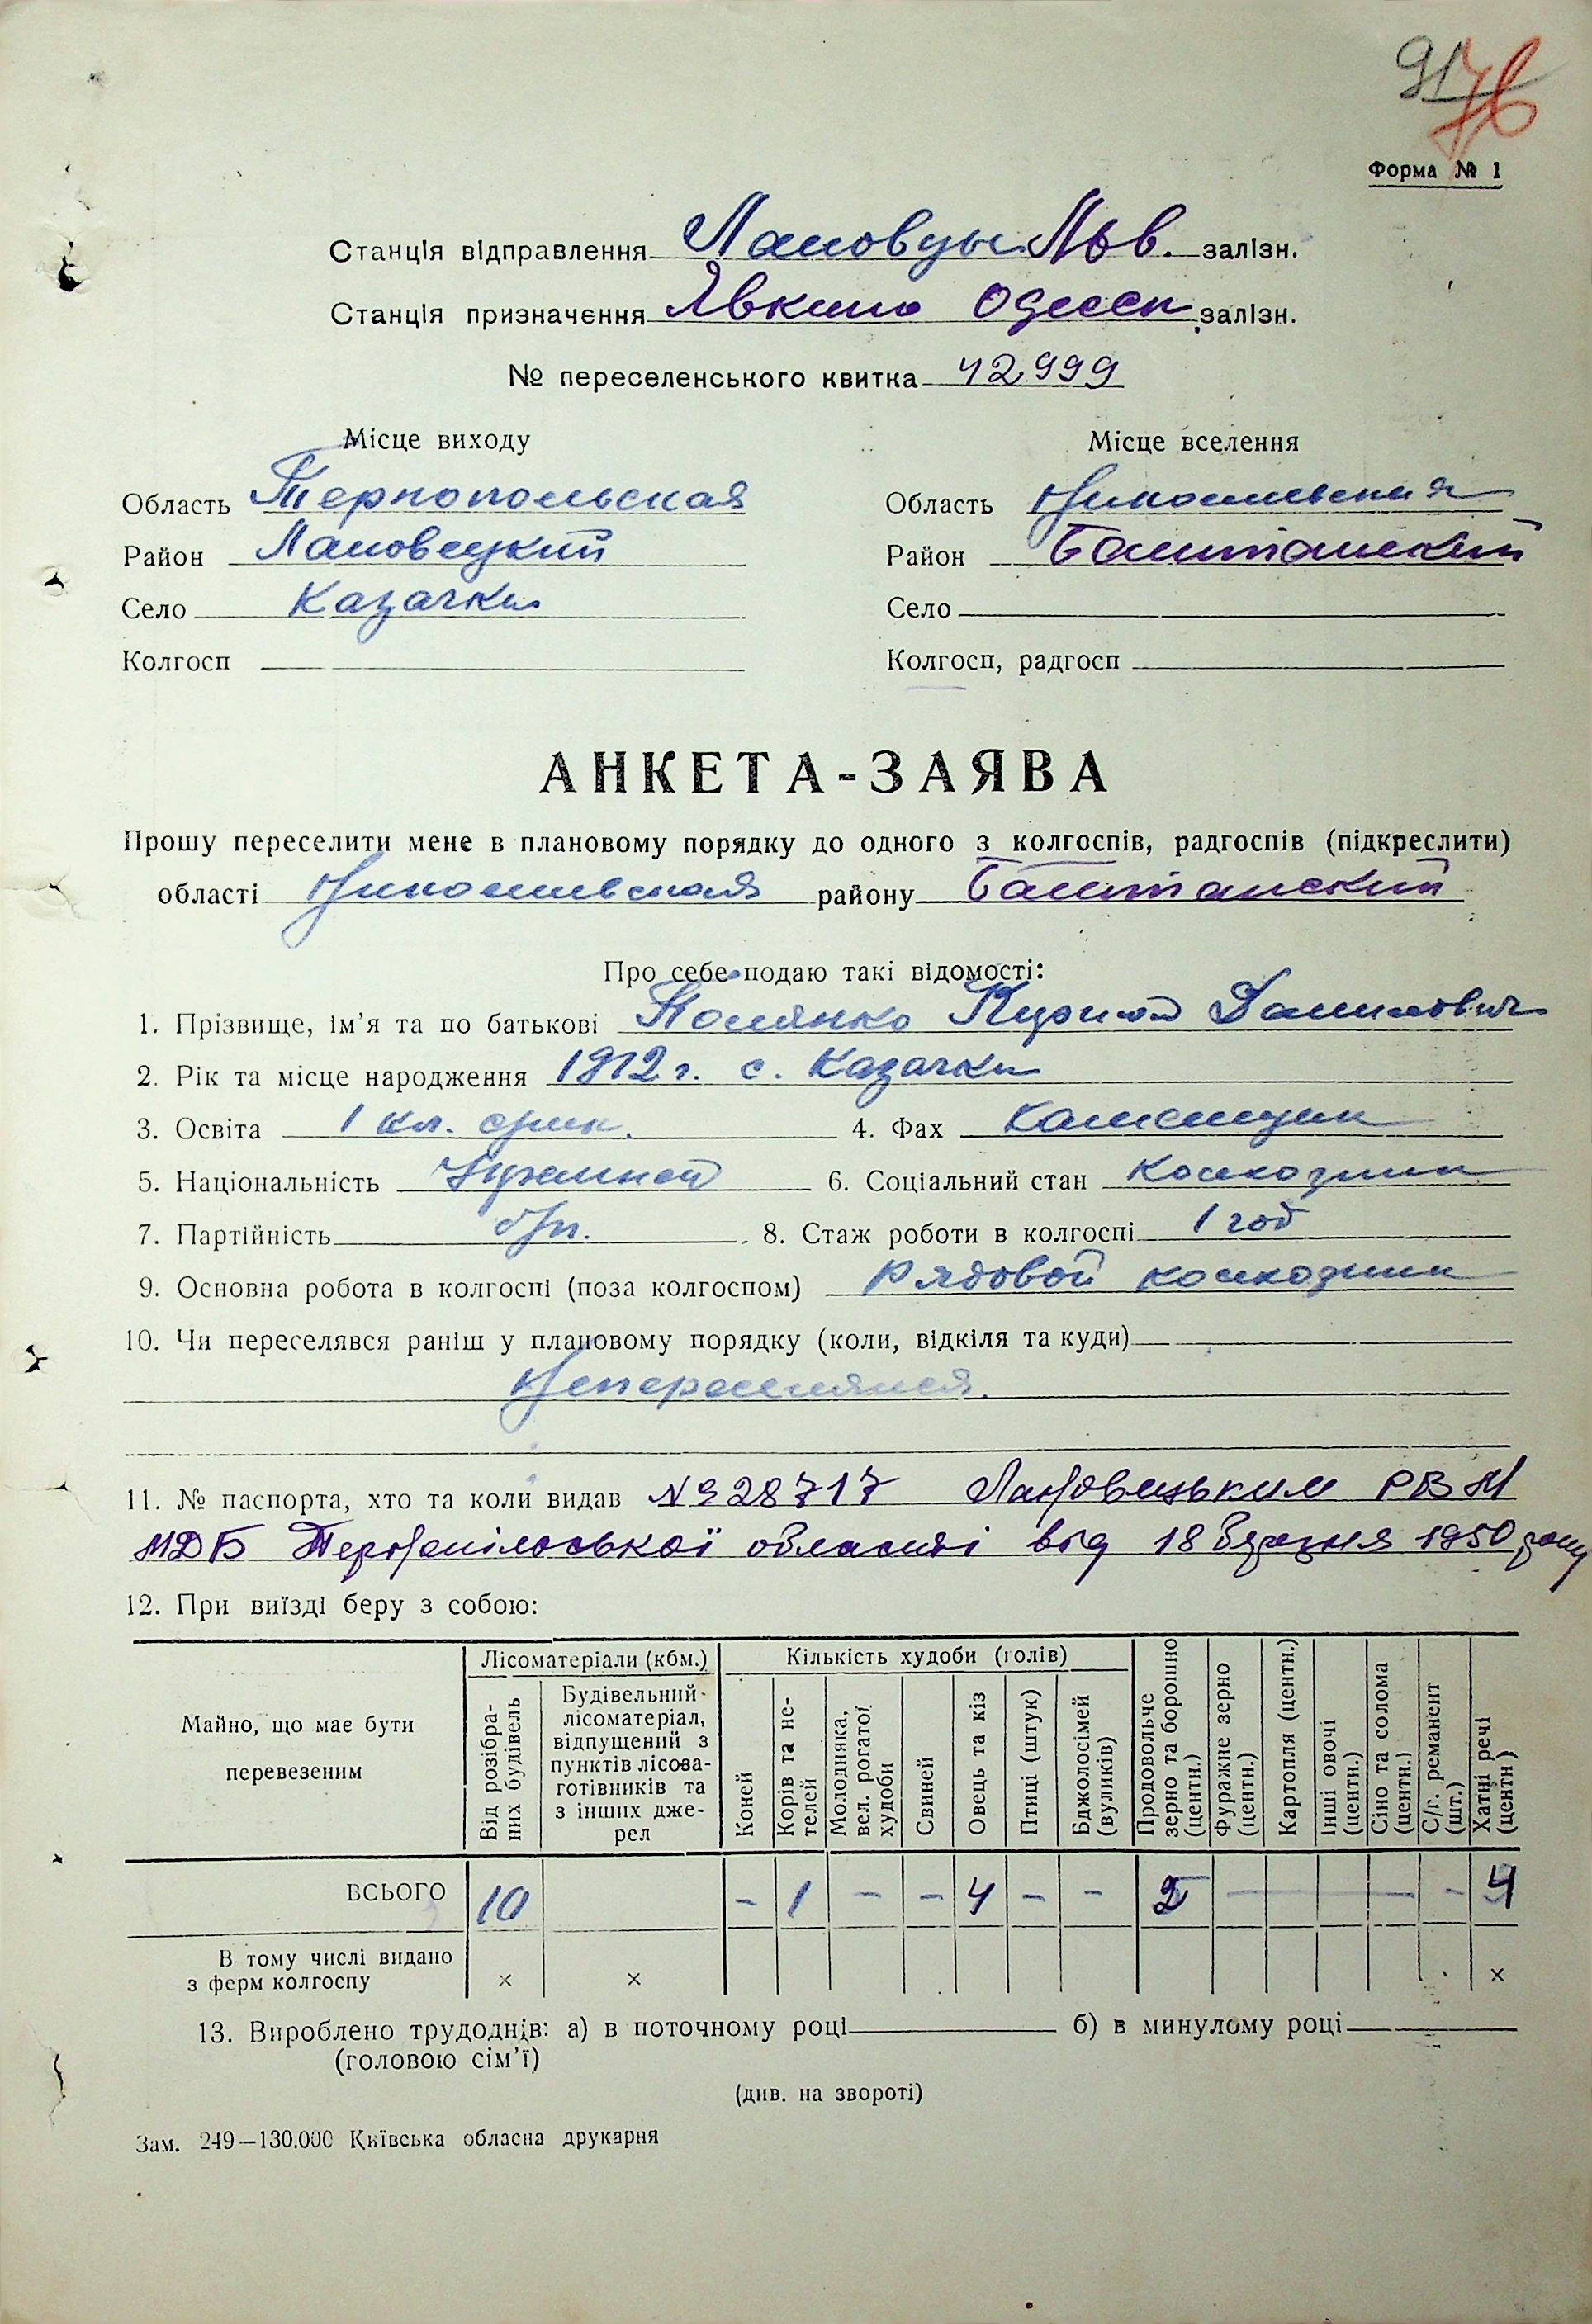 91 76
Форма № 1
Станція відправлення Лановцы Льв. залізн.
Станція призначення Явкино Одесск. залізн.
№ переселенського квитка 42999
Місце виходу Місце вселення
Область Тернопольская Область Николаевская
Район Лановецкий Район Баштанский
Село Казачки Село
Колгосп Колгосп, радгосп
АНКЕТА-ЗАЯВА
Прошу переселити мене в плановому порядку до одного з колгоспів, радгоспів (підкреслити)
області Николаевская району Баштанский
Про себе подаю такі відомості:
1. Прізвище, ім’я та по батькові Полянко Данилович
2. Рік та місце народження 1912 г. с. Казачки
3. Освіта 1 кл. 4. Фах Каменщик
5. Національність 6. Соціальний стан Колхозник
7. Партійність б/п. 8. Стаж роботи в колгоспі 1 год
9. Основна робота в колгоспі (поза колгоспом) Рядовой колхозник
10. Чи переселявся раніш у плановому порядку (коли, відкіля та куди)
Непереселялся.
11. № паспорта, хто та коли видав №928717 Лановецьким РВ М
МДБ Тернопільської області від 18 березня 1950 року
12. При виїзді беру з собою:
Майно, що має бути перевезеним
Лісоматеріали (кбм.)
Від розібраних будівель
Будівельний лісоматеріал, відпущений з пунктів лісозаготівників та з інших джерел
Кількість худоби (голів)
Коней
Корів та нетелей
Молодняка, вел. рогатої худоби
Свиней
Овець та кіз
Птиці (штук)
Бджолосімей (вуликів)
Продовольче зерно та борошно (центн.)
Фуражне зерно (центн.)
Картопля (центн.)
Інші овочі (центн.)
Сіно та солома (центн.)
С/г. реманент (шт.)
Хатні речі (центн)
ВСЬОГО 10 – 1 – – 4 – – 2 – – – 4
В тому числі видано
з ферм колгоспу × × ×
13. Вироблено трудоднів: а) в поточному році б) в минулому році
(головою сім’ї)
(див. на звороті)
Зам. 249—130.000 Київська обласна друкарня